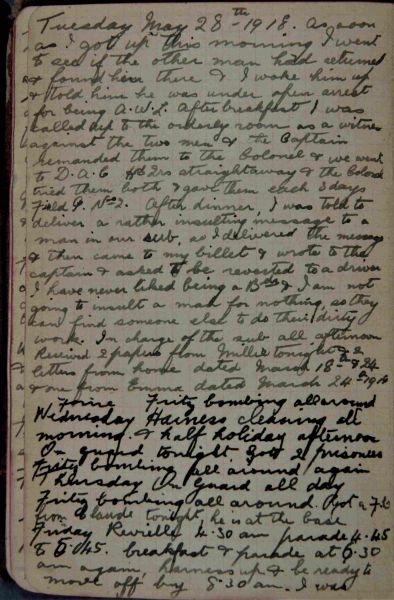 Tuesday May 28th 1918. As soon
as I got up this morning I went
to see if the other man had returned
& found him there & I woke him up
& told him he was under open arrest
for being A.W.L. After breakfast I was
called up to the orderly room as a witness
against the two men & the Captain
remanded them to the Colonel & we went
to D.A.C. Hd Qrs straightaway & the Colonel
tried them both & gave them each 3 days
Field P. No 2. After dinner I was told to
deliver a rather insulting message to a
man in our sub, so I delivered the message
& then came to my billet & wrote to the
captain & asked to be reverted to a driver
I have never liked being a Bdr & I am not
going to insult a man for nothing, so they
can find someone else to do their dirty
work. In charge of the sub all afternoon
Received 2 papers from Millie tonight & 2
letters from home dated March 18th & 24
& one from Emma dated March 24th 1918
Fritz bombing all around
Wednesday Harness cleaning all
morning & half holiday afternoon
On guard tonight. Got 2 prisoners
Fritz bombing all around again
Thursday On Guard all day
Fritz bombing all around. Got a
from Claude tonight he is at the base
Friday Reveille 4.30 am parade 4.45
to 5.45. breakfast & parade at 6.30
am again harness up & be ready to
move off by 8.30 am. I was